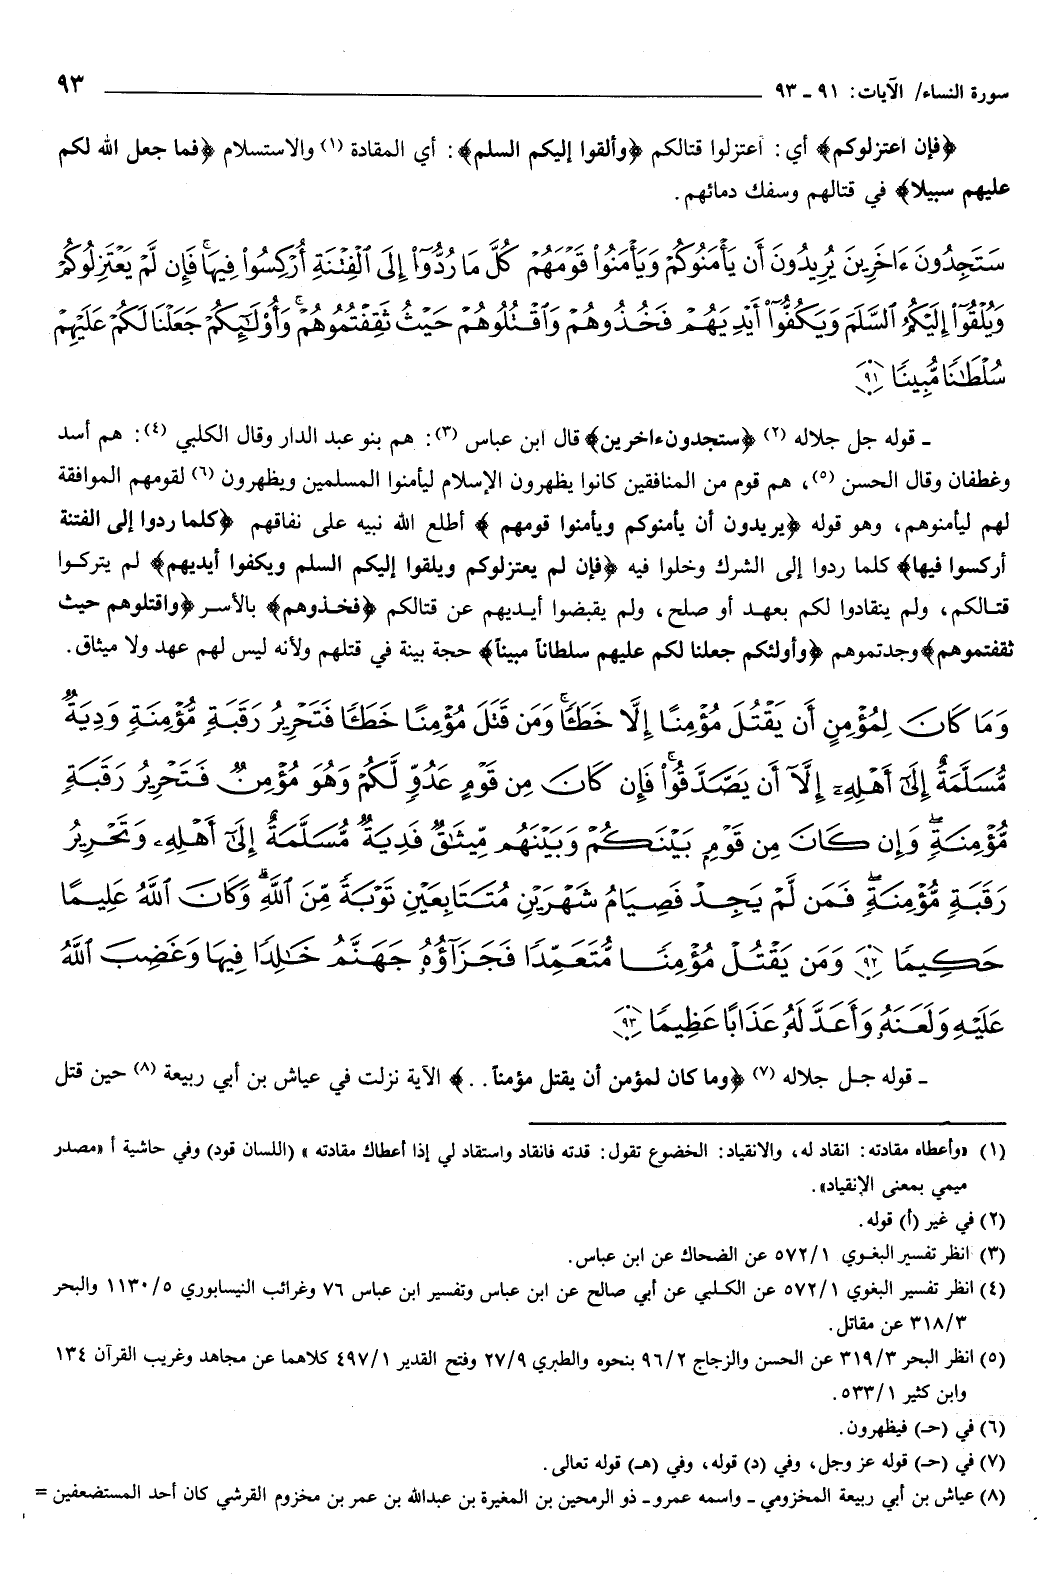 سورة النساء/ الآيات: ٩١ ـ ٩٣ ٩٣
﴿فإن اعتزلوكم﴾ أي: اعتزلوا قتالكم ﴿وألقوا إليكم السلم﴾: أي المقادة (١) والاستسلام ﴿فما جعل الله لكم
عليهم سبيلا﴾ في قتالهم وسفك دمائهم.
سَتَجِدُونَ ءَاخَرِينَ يُرِيدُونَ أَن يَأْمَنُوكُمْ وَيَأْمَنُوا۟ قَوْمَهُمْ كُلَّ مَا رُدُّوٓا۟ إِلَى ٱلْفِتْنَةِ أُرْكِسُوا۟ فِيهَا ۚ فَإِن لَّمْ يَعْتَزِلُوكُمْ
وَيُلْقُوٓا۟ إِلَيْكُمُ ٱلسَّلَمَ وَيَكُفُّوٓا۟ أَيْدِيَهُمْ فَخُذُوهُمْ وَٱقْتُلُوهُمْ حَيْثُ ثَقِفْتُمُوهُمْ ۚ وَأُو۟لَٰٓئِكُمْ جَعَلْنَا لَكُمْ عَلَيْهِمْ
سُلْطَٰنًا مُّبِينًا ٩١
ـ قوله جل جلاله (٢) ﴿ستجدون ءاخرين﴾ قال ابن عباس (٣): هم بنو عبد الدار وقال الكلبي (٤): هم أسد
وغطفان وقال الحسن (٥)، هم قوم من المنافقين كانوا يظهرون الإسلام ليأمنوا المسلمين ويظهرون (٦) لقومهم الموافقة
لهم ليأمنوهم، وهو قوله ﴿يريدون أن يأمنوكم ويأمنوا قومهم ﴾ أطلع الله نبيه على نفاقهم ﴿كلما ردوا إلى الفتنة
أركسوا فيها﴾ كلما ردوا إلى الشرك وخلوا فيه ﴿فإن لم يعتزلوكم ويلقوا إليكم السلم ويكفوا أيديهم﴾ لم يتركوا
قتالكم، ولم ينقادوا لكم بعهد أو صلح، ولم يقبضوا أيديهم عن قتالكم ﴿فخذوهم﴾ بالأسر ﴿واقتلوهم حيث
ثقفتموهم﴾ وجدتموهم ﴿وأولئكم جعلنا لكم عليهم سلطاناً مبيناً﴾ حجة بينة في قتلهم ولأنه ليس لهم عهد ولا ميثاق.
وَمَا كَانَ لِمُؤْمِنٍ أَن يَقْتُلَ مُؤْمِنًا إِلَّا خَطَـًٔا ۚ وَمَن قَتَلَ مُؤْمِنًا خَطَـًٔا فَتَحْرِيرُ رَقَبَةٍ مُّؤْمِنَةٍ وَدِيَةٌ
مُّسَلَّمَةٌ إِلَىٰٓ أَهْلِهِۦٓ إِلَّآ أَن يَصَّدَّقُوا۟ ۚ فَإِن كَانَ مِن قَوْمٍ عَدُوٍّ لَّكُمْ وَهُوَ مُؤْمِنٌ فَتَحْرِيرُ رَقَبَةٍ
مُّؤْمِنَةٍ ۖ وَإِن كَانَ مِن قَوْمٍۭ بَيْنَكُمْ وَبَيْنَهُم مِّيثَٰقٌ فَدِيَةٌ مُّسَلَّمَةٌ إِلَىٰٓ أَهْلِهِۦ وَتَحْرِيرُ
رَقَبَةٍ مُّؤْمِنَةٍ ۖ فَمَن لَّمْ يَجِدْ فَصِيَامُ شَهْرَيْنِ مُتَتَابِعَيْنِ تَوْبَةً مِّنَ ٱللَّهِ ۗ وَكَانَ ٱللَّهُ عَلِيمًا
حَكِيمًا ٩٢ وَمَن يَقْتُلْ مُؤْمِنًا مُّتَعَمِّدًا فَجَزَآؤُهُۥ جَهَنَّمُ خَٰلِدًا فِيهَا وَغَضِبَ ٱللَّهُ
عَلَيْهِ وَلَعَنَهُۥ وَأَعَدَّ لَهُۥ عَذَابًا عَظِيمًا ٩٣
ـ قوله جل جلاله (٧) ﴿وما كان لمؤمن أن يقتل مؤمناً..﴾ الآية نزلت في عياش بن أبي ربيعة (٨) حين قتل
(١) «وأعطاه مقادته: انقاد له، والانقياد: الخضوع تقول: قدته فانقاد واستقاد لي إذا أعطاك مقادته » (اللسان قود) وفي حاشية أ «مصدر
ميمي بمعنى الإنقياد».
(٢) في غير (أ) قوله.
(٣) انظر تفسير البغوي ٥٧٢/١ عن الضحاك عن ابن عباس.
(٤) انظر تفسير البغوي ٥٧٢/١ عن الكلبي عن أبي صالح عن ابن عباس وتفسير ابن عباس ٧٦ وغرائب النيسابوري ١١٣٠/٥ والبحر
٣١٨/٣ عن مقاتل.
(٥) انظر البحر ٣١٩/٣ عن الحسن والزجاج ٩٦/٢ بنحوه والطبري ٢٧/٩ وفتح القدير ٤٩٧/١ كلاهما عن مجاهد وغريب القرآن ١٣٤
وابن كثير ٥٣٣/١.
(٦) في (حـ) فيظهرون.
(٧) في (حـ) قوله عز وجل، وفي (د) قوله، وفي (هـ) قوله تعالى.
(٨) عياش بن أبي ربيعة المخزومي ـ واسمه عمرو ـ ذو الرمحين بن المغيرة بن عبدالله بن عمر بن مخزوم القرشي كان أحد المستضعفين =